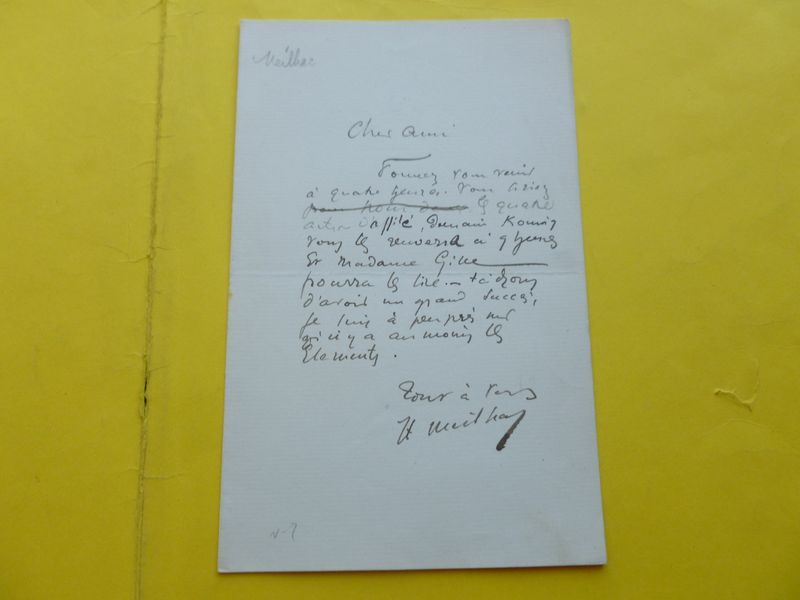 Meilhac
Cher Ami
Pouvez vous venir
à quatre heures. Vous lirez
les quatre
actes d'affilé, demain Koning
vous les renverra à 9 heures
Et Madame Gille
pourra les lire. — tâchons
d'avoir un grand succès,
je suis à peu près sûr
qu'il y a au moins les
Elements.
Tout à vous
H Meilhac